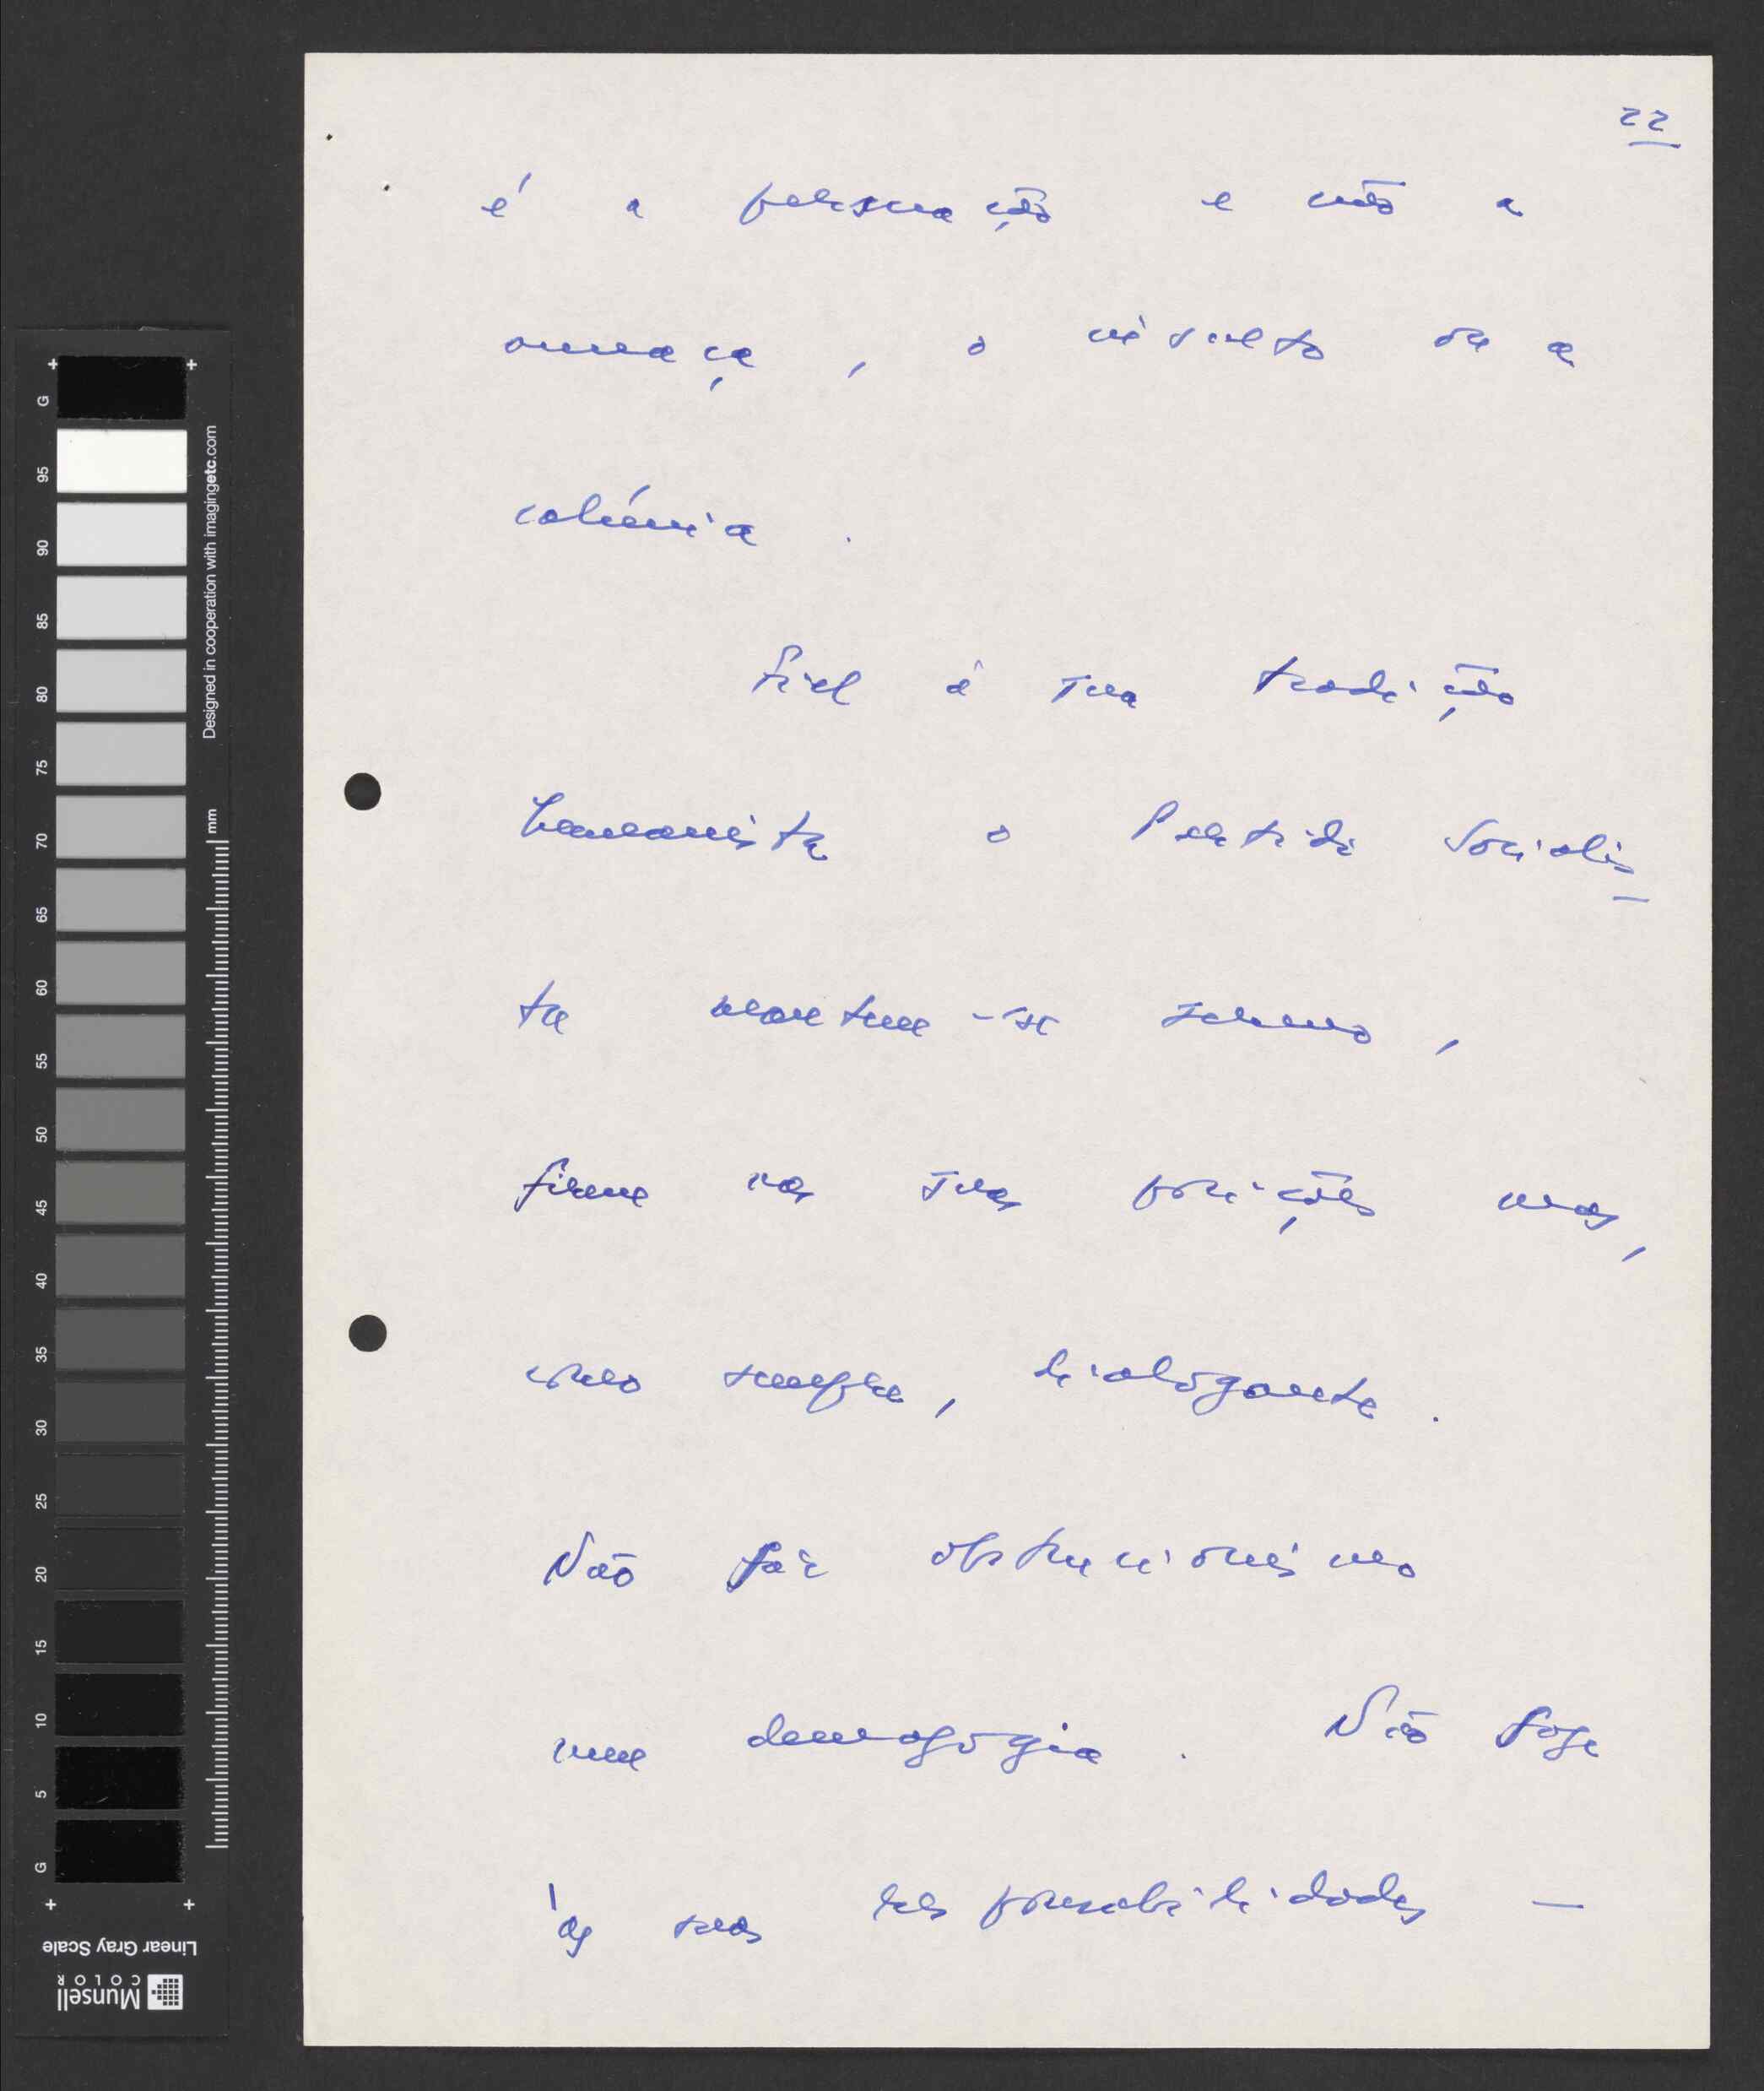 22
é a persuação e não a
ameaça, o insulto ou a
calúnia.
Fiel à sua tradição
humanista o Partido Socialis-
ta mantem-se sereno,
firme nas suas posições mas,
como sempre, dialogante.
Não faz obstrucionismo
nem demagogia. Não foge
às suas responsabilidades —
G
95
90
85
80
75
70
65
60
55
50
45
40
35
30
25
20
15
10
5
G
Designed in cooperation with imagingetc.com
mm
Linear Gray Scale
Munsell
COLOR